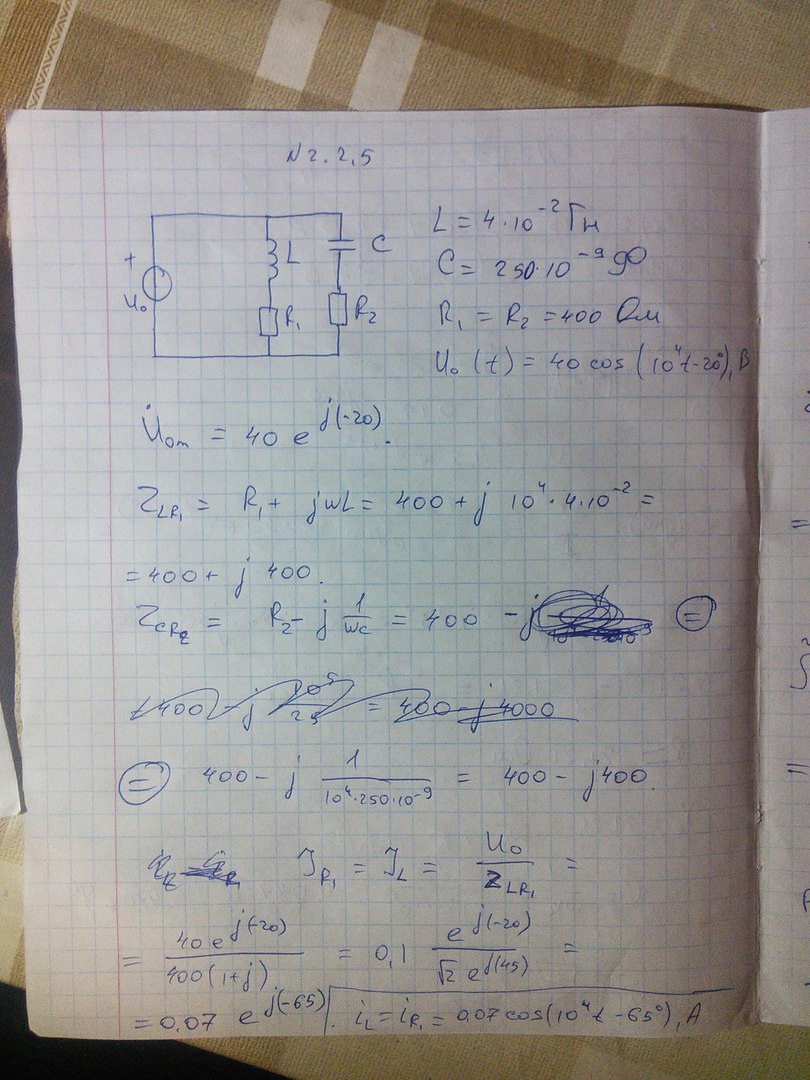 N 2.2.5
+ U₀ L C R₁ R₂
L = 4·10⁻² Гн
C = 250·10⁻⁹ Ф
R₁ = R₂ = 400 Ом
U₀ (t) = 40 cos (10⁴t-20°), В
U̇₀ₘ = 40 e^{j(-20)}.
Z_{LR₁} = R₁ + jωL = 400 + j 10⁴·4·10⁻² =
= 400 + j 400.
Z_{CR₂} = R₂ - j 1/ωC = 400 - j =
400 - j 10⁵/25 = 400 - j 4000
= 400 - j 1/(10⁴·250·10⁻⁹) = 400 - j400.
J_{R₁} = J_L = U₀/Z_{LR₁} =
= 40 e^{j(-20)}/400(1+j) = 0,1 e^{j(-20)}/(√2 e^{j(45)}) =
= 0,07 e^{j(-65)}. i_L = i_{R₁} = 0,07 cos(10⁴t - 65°), А